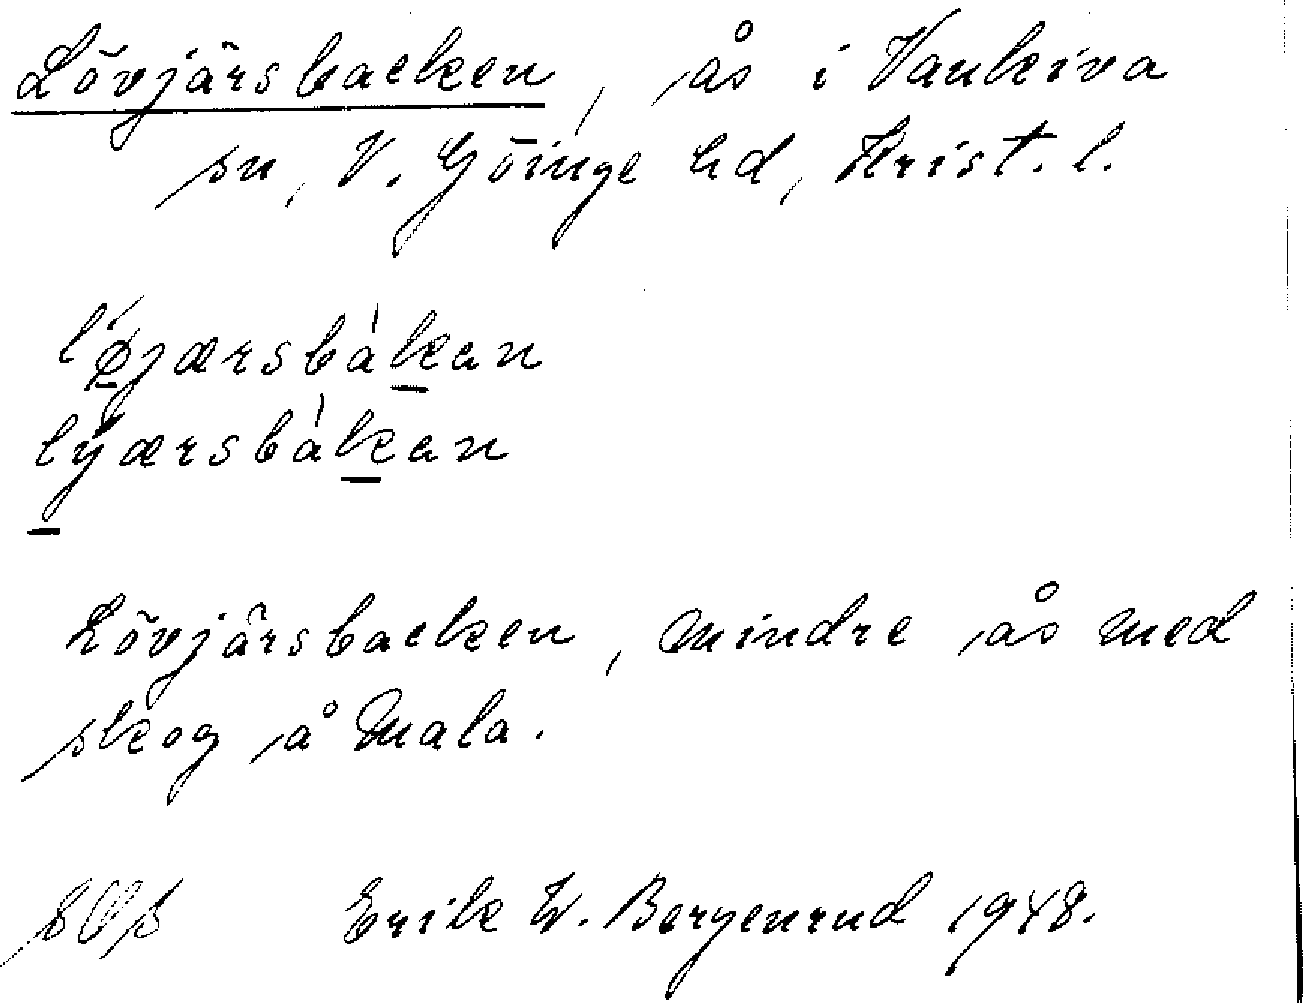 Lövjärsbacken, ås i Vankiva
sn, V. Göinge hd, Krist. l.
lǿjærsbákan
lýærsbákan
Lövjärsbacken, mindre ås med
skog å Mala.
Erik W. Bergenrud 1948.